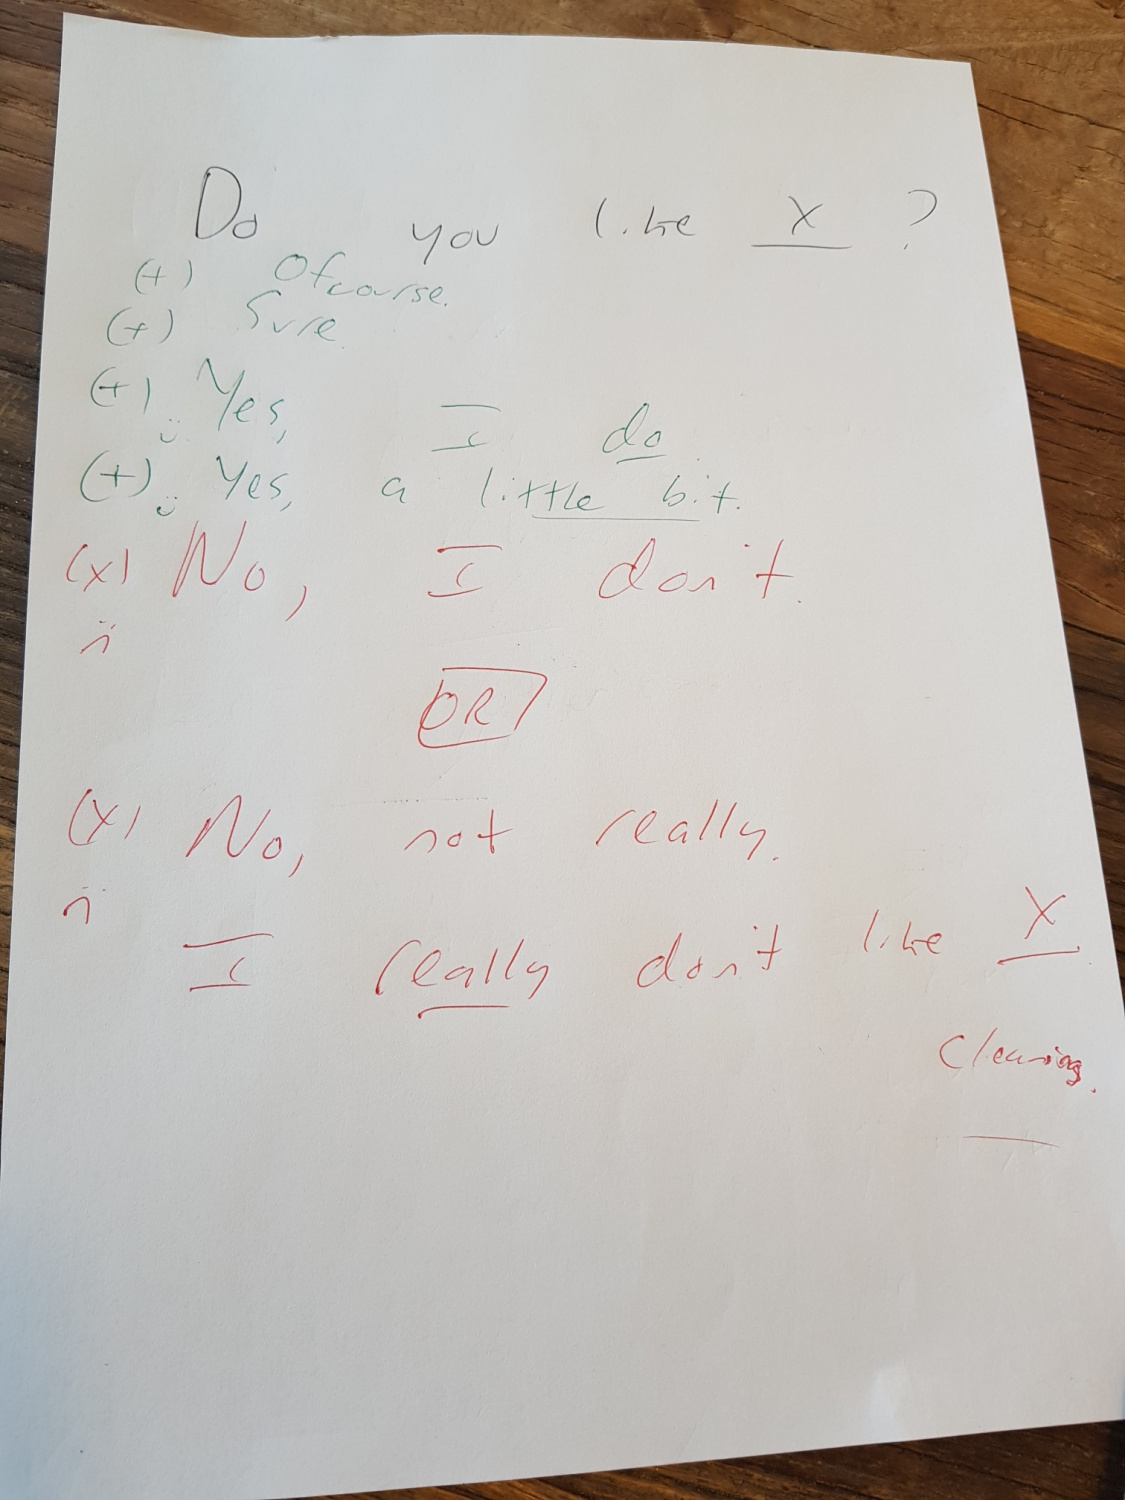 Do you like X ?
(+) Ofcourse.
(+) Sure
(+) Yes, I do
(+) Yes, a little bit.
(x) No, I don't.
OR
(x) No, not really.
I really don't like X
Cleaning.